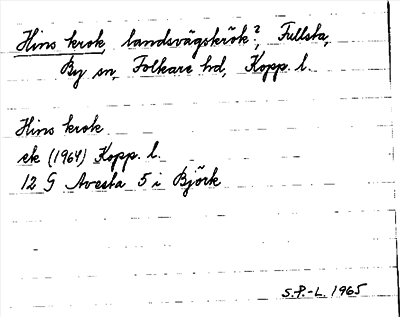 Hins krok, landsvägskrök?, Fullsta,
By sn, Folkare hd, Kopp. l.
Hins krok
ek (1964) Kopp. l.
12 G Avesta 5 i Björk
S.P.-L. 1965